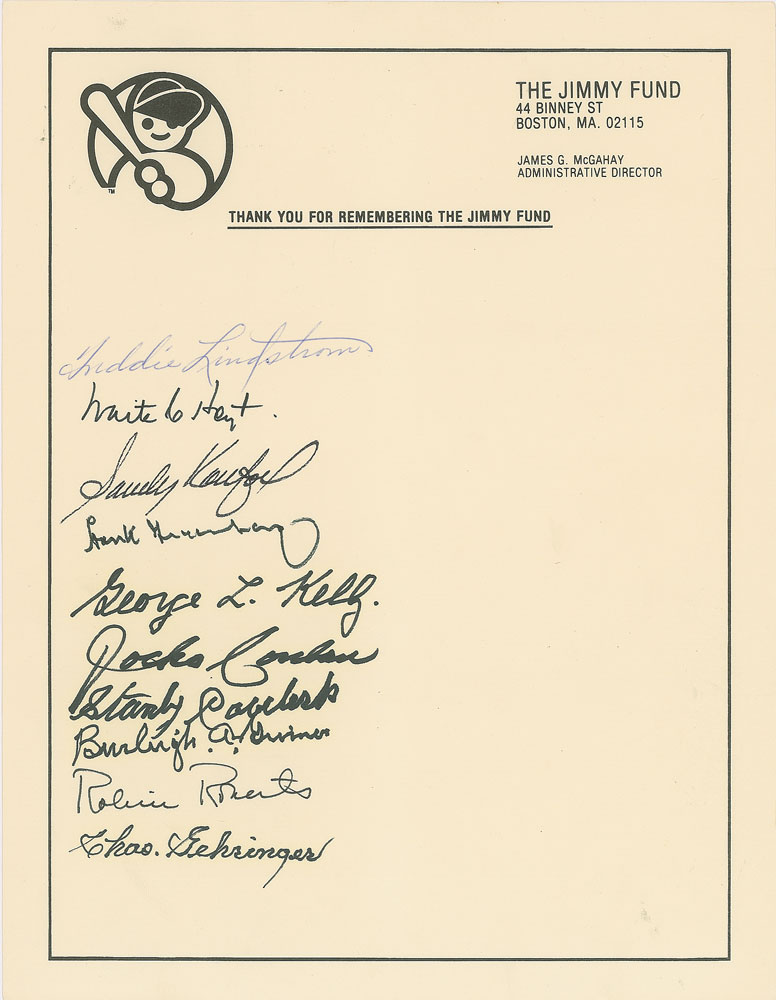 THE JIMMY FUND
44 BINNEY ST
BOSTON, MA. 02115
JAMES G. McGAHAY
ADMINISTRATIVE DIRECTOR
TM
THANK YOU FOR REMEMBERING THE JIMMY FUND
Freddie Lindstrom
Waite C Hoyt.
Sandy Koufax
Hank Greenberg
George L. Kelly.
Jocko Conlan
Stanly Coveleski
Burleigh. A. Grimes
Robin Roberts
Chas. Gehringer